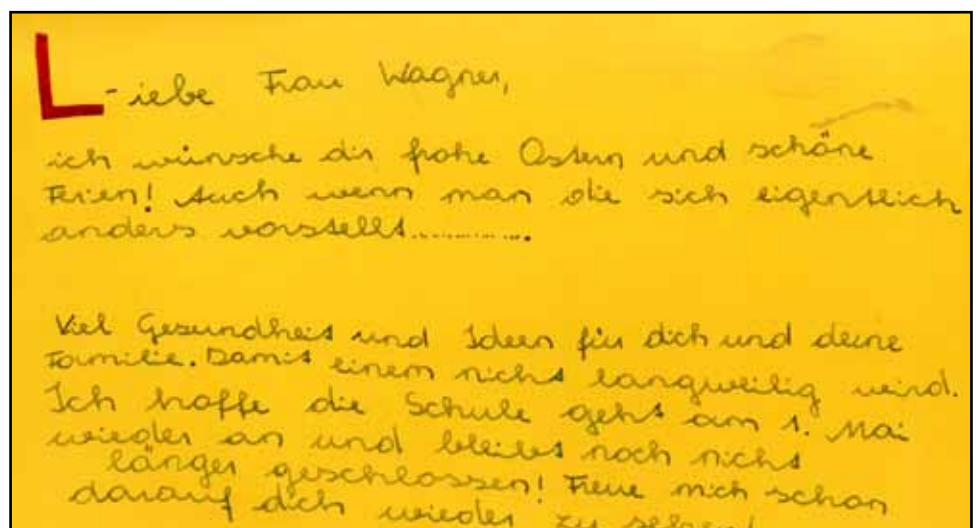 L-iebe Frau Wagner,
ich wünsche dir frohe Ostern und schöne
Ferien! Auch wenn man die sich eigentlich
anders vorstellt.............
Viel Gesundheit und Ideen für dich und deine
Familie. Damit einem nicht langweilig wird.
Ich hoffe die Schule geht am 1. Mai
wieder an und bleibt noch nicht
länger geschlossen! Freue mich schon
darauf dich wieder zu sehen!